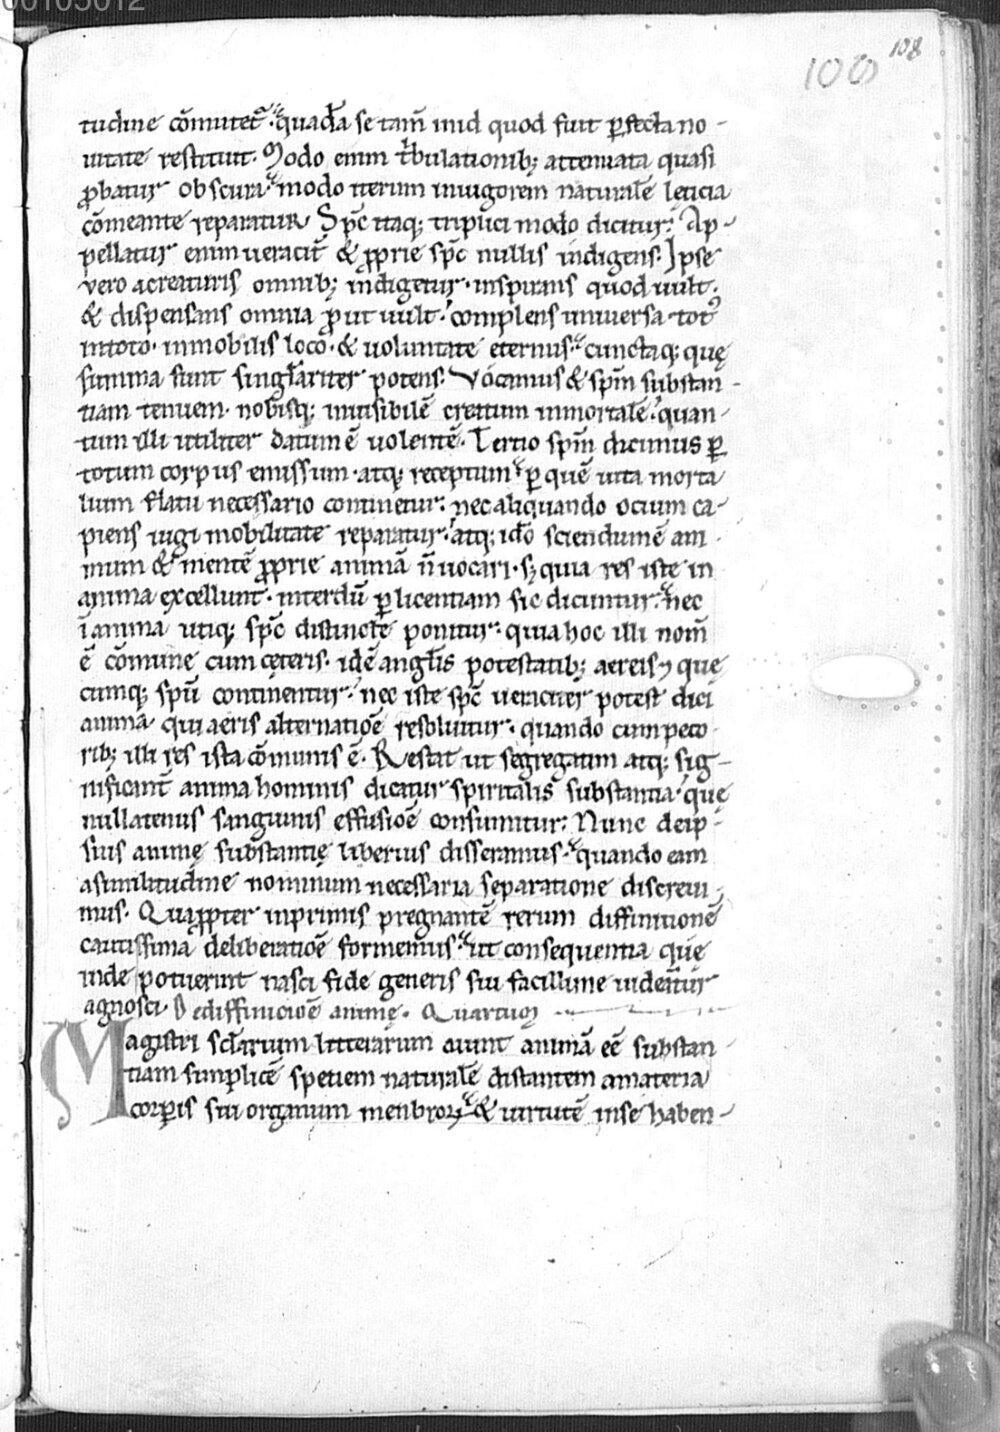 00105012
108
100
tudine cōmutet᷑. quada̅ se tam̅ inid quod fuit ꝑfecta no-
uitate restituit. Modo enim t̅bulationib; attenuata quasi
ꝓbatur obscura. modo iterum inuigorem naturalē lęticia
cōmeante reparatur. Sp̅c itaq; triplici modo dicitur. Ap-
pellatur enim ueracit̅ & ꝓprie sp̅c nullis indigens. Ipse
vero acreaturis omnib; indigetur. inspirans quod uult.
& dispensans omnia ꝓut uult. complens uniuersa tot᷒
intoto. inmobilis loco. & uoluntate eternus. cunctaq; quę
summa sunt singl̅ariter potens. Vocamus & sp̅m substan-
tiam tenuem. nobisq; inuisibilē creatum inmortalē. quan-
tum illi utiliter datum ē uolentē. Tertio sp̅m dicimus ꝑ
totum corpus emissum. atq; receptum. ꝑ quē uita morta
lium flatu necessario continetur. nec aliquando ocium ca-
piens iugi mobilitate reparatur. atq; ido̅ sciendumē ani-
mum & mentē ꝓprie animā n̅ uocari. sꝫ quia res iste in
anima excellunt. interdū ꝑ licentiam sic dicuntur. nec
ī anima utiq; sp̅c distincte ponitur. quia hoc illi nom̅
ē cōmune cum cęteris. idē angl̅is potestatib; aereis ⁊ quę
cumq; spū continentur. nec iste sp̅c ueraciter potest dici
anima qui aeris alternatiōe resoluitur. quando cum peco-
rib; illi res ista cōmunis ē. Restat ut segregatim atq; sig-
nificant̅ anima hominis dicatur spiritalis substantia. quę
nullatenus sanguinis effusiōe consumitur. Nunc deip-
sius animę substantię liberius disseramus. quando eam
asimilitudine nominum necessaria separatione discreui-
mus. Quaꝓpter inprimis pregnantē rerum diffinitionē
cautissima deliberatiōe formemus. ut consequentia que
inde potuerint nasci fide generis sui facillime uideant̅ur
agnosci. Dediffiniciōe animę. Quartuꝫ
Magistri scl̅arium litterarum aiunt animā eē substan-
tiam simplicē speciem naturalē distantem amateria
corꝑis sui organum menbroꝝ & uirtutē inse haben-